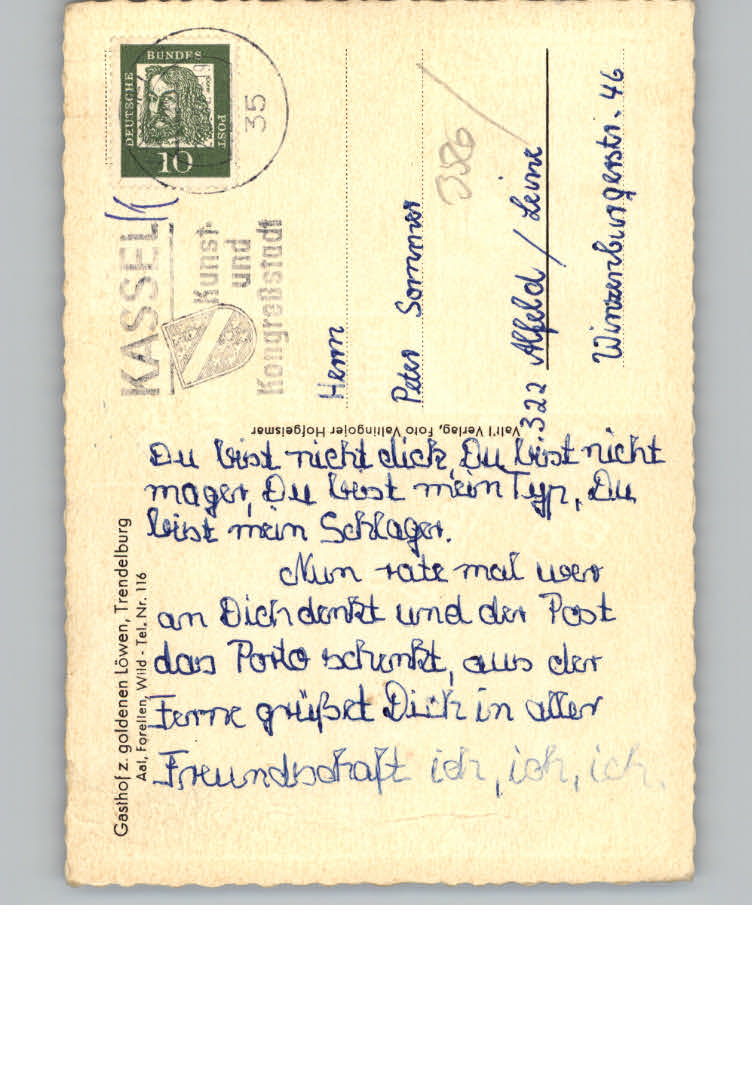 Gasthof z. goldenen Löwen, Trendelburg
Aal, Forellen, Wild - Tel. Nr. 116
Du bist nicht dick, Du bist nicht
mager, Du bist mein Typ, Du
bist mein Schlager.
Nun rate mal wer
an Dich denkt und der Post
das Porto schenkt, aus der
Ferne grüßet Dich in aller
Freundschaft ich, ich, ich.
Foto Valtingojer Hofgeismar
KASSEL
Kunst-
und
Kongreßstadt
35
DEUTSCHE
BUNDES
POST
10
Herrn
Peter Sommer
322 Alfeld / Leine
Winzenburgerstr. 46